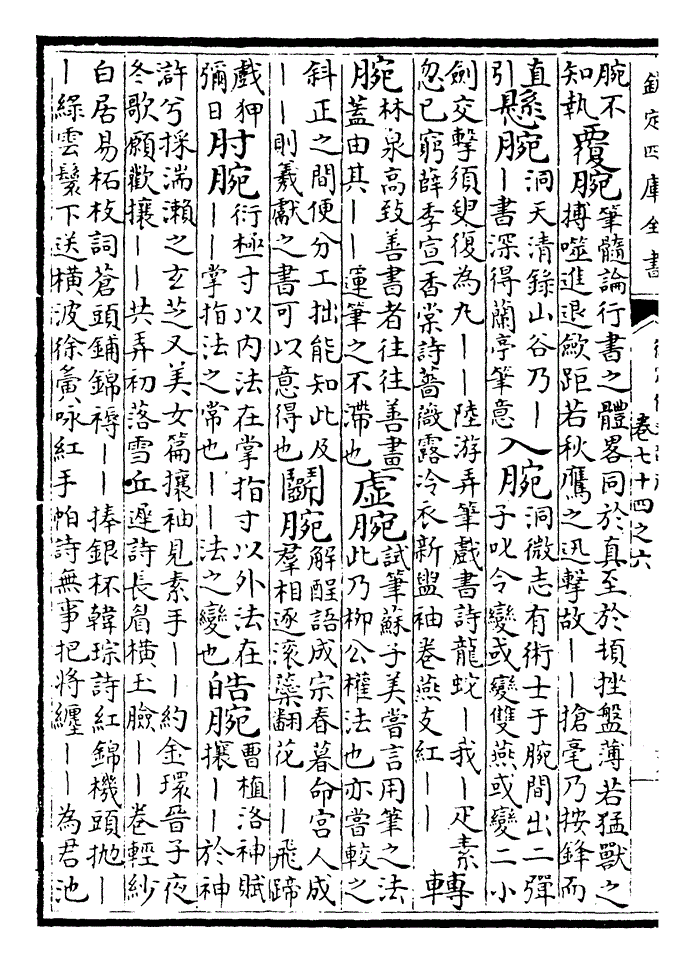 欽定四庫全書
卷七十四之六
腕不
知執
覆腕
筆髓論行書之體畧同於真至於頓挫盤薄若猛獸之
搏噬進退歛距若秋鷹之迅擊故丨丨搶毫乃按鋒而
直
引
懸腕
洞天清錄山谷乃丨
丨書深得蘭亭筆意
入腕
洞微志有術士于腕間出二彈
子叱令變或變雙燕或變二小
劍交擊須臾復為九丨丨陸游弄筆戲書詩龍蛇丨我丨疋素
忽已窮薛季宣香棠詩薔薇露冷衣新盥袖卷燕支紅丨丨
轉
腕
林泉高致善書者往往善畫
蓋由其丨丨運筆之不滯也
虛腕
試筆蘇子美嘗言用筆之法
此乃柳公權法也亦嘗較之
斜正之間便分工拙能知此及
丨丨則羲獻之書可以意得也
鬭腕
解酲語成宗春暮命宮人成
羣相逐滚藥翻花丨丨飛蹄
戲狎
彌日
肘腕
衍極寸以内法在掌指寸以外法在
丨丨掌指法之常也丨丨法之變也
皓腕
曹植洛神賦
攘丨丨於神
滸兮採湍瀨之玄芝又美女篇攘袖見素手丨丨約金環晉子夜
冬歌願歡攘丨丨共弄初落雪丘遲詩長眉橫玉臉丨丨卷輕紗
白居易柘枝詞蒼頭鋪錦褥丨丨捧銀杯韓琮詩紅錦機頭抛丨
丨綠雲鬟下送橫波徐夤咏紅手帕詩無事把將纏丨丨為君池